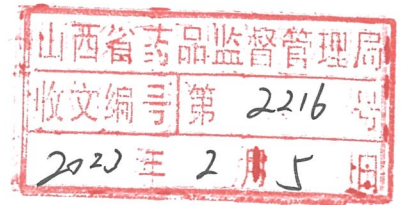 山西省药品监督管理局
收文编号 第 2216 号
2023 年 2 月 5 日